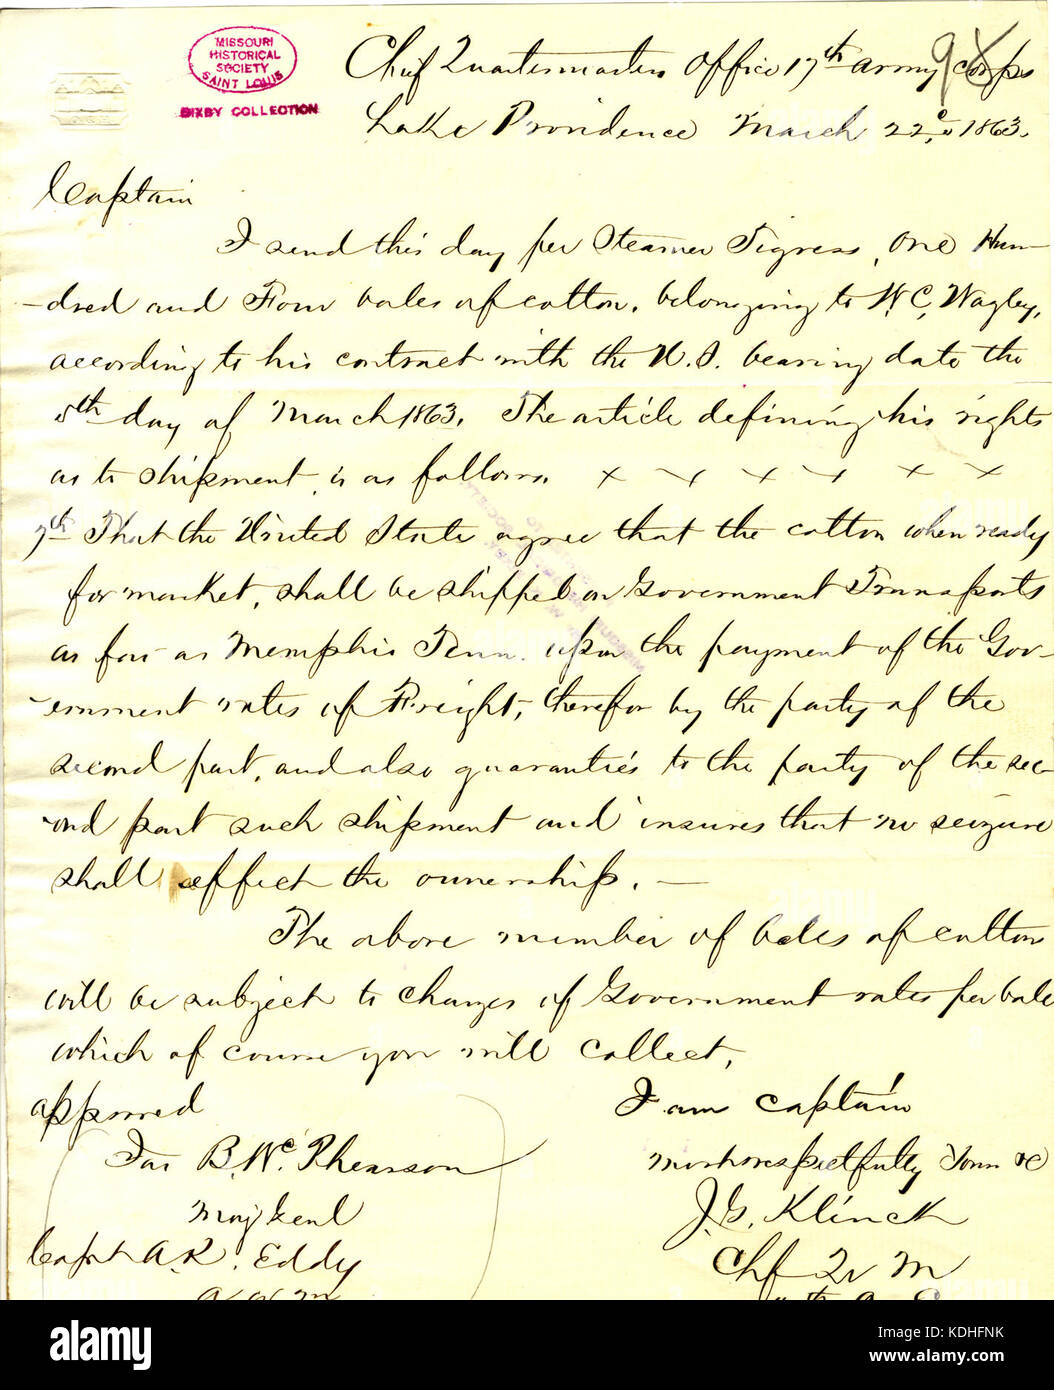 MISSOURI
HISTORICAL
SOCIETY
SAINT LOUIS
BIXBY COLLECTION
Chief Quartermasters Office 17th Army Corps
Lake Providence March 22d, 1863.
Captain
I send this day per Steamer Tigress, One Hun-
-dred and Four bales of cotton, belonging to W.C. Wagley,
according to his contract with the U.S. bearing date the
5th day of March 1863. The article defining his rights
as to shipment, is as follows. x x x x x x
7th That the United State agree that the cotton when ready
for market, shall be shipped on Government Transports
as far as Memphis Tenn. upon the payment of the Gov-
-ernment rates of Freight, therefor by the party of the
second part, and also guaranties to the party of the sec-
-ond part such shipment and insures that no seizure
shall effect the ownership. —
The above number of bales of cotton
will be subject to charges of Government rates per bale
which of course you will collect,
approved
I am Captain
Jas B. Mc. Phearson
most respectfully Yours &c
Maj Genl
J.G. Klinck
Capt A.R. Eddy
Chf Qr M
A Q M
alamy
Image ID: KDHFNK
www.alamy.com